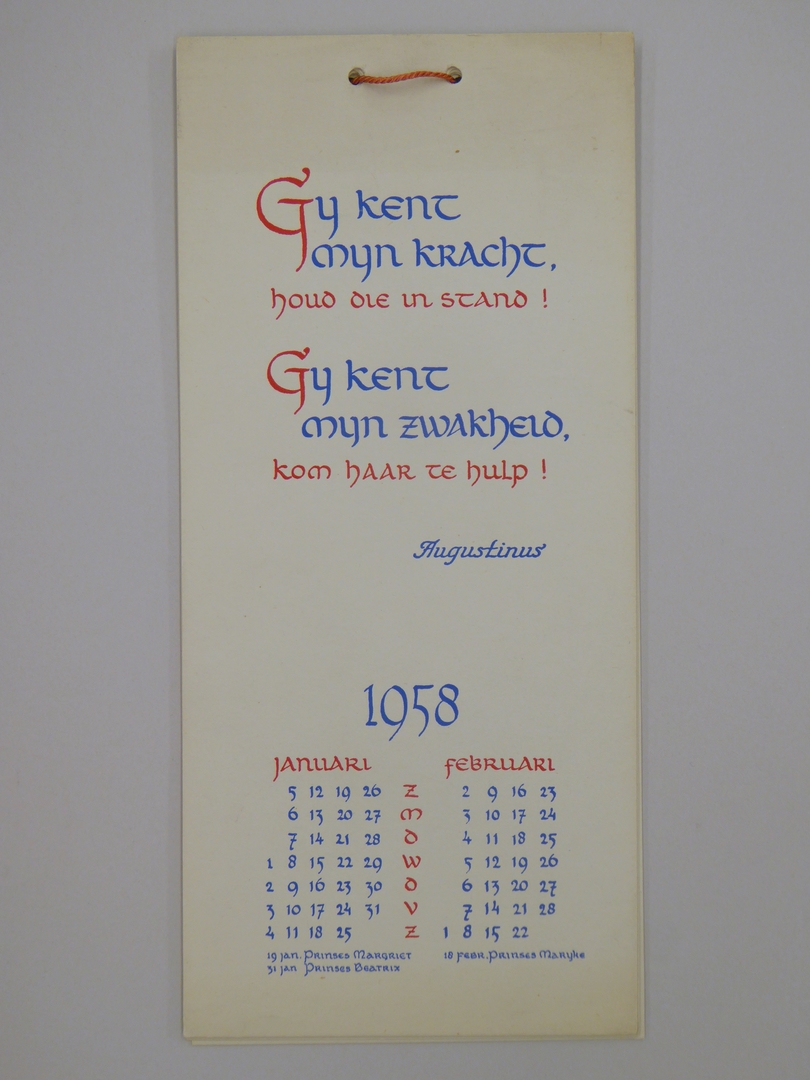 Gy kent
myn kracht,
houd die in stand !
Gy kent
myn zwakheid,
kom haar te hulp !
Augustinus
1958
januari februari
5 12 19 26 Z 2 9 16 23
6 13 20 27 M 3 10 17 24
7 14 21 28 D 4 11 18 25
1 8 15 22 29 W 5 12 19 26
2 9 16 23 30 D 6 13 20 27
3 10 17 24 31 V 7 14 21 28
4 11 18 25 Z 1 8 15 22
19 jan. Prinses Margriet 18 febr. Prinses Maryke
31 jan Prinses Beatrix